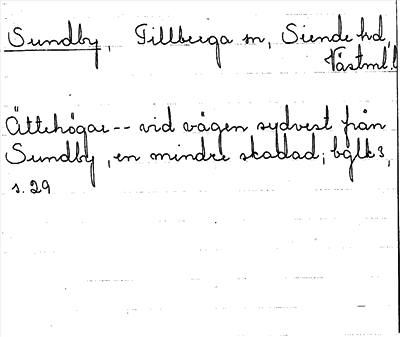 Sundby, Tillberga sn, Siende hd,
Västml.l
Ättehögar -- vid vägen sydvest från
Sundby, en mindre skadad; bglk 3,
s. 29